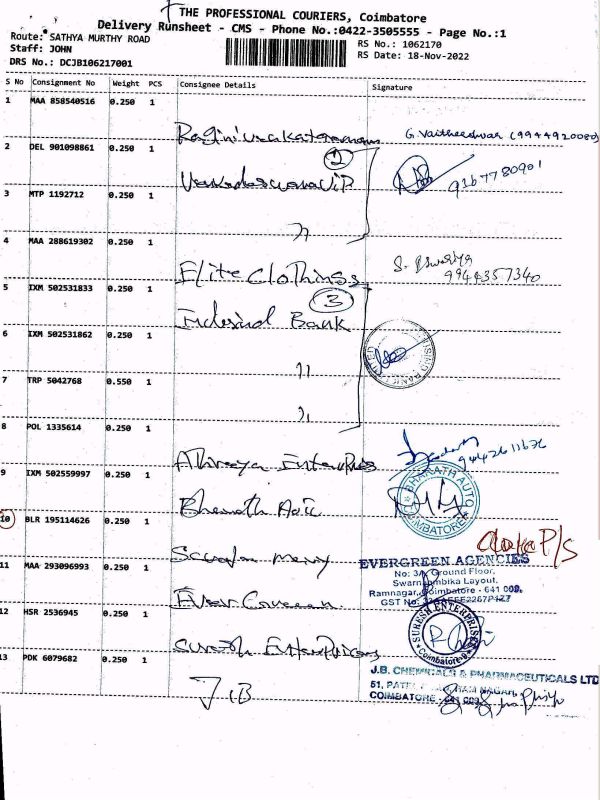 THE PROFESSIONAL COURIERS, Coimbatore
Delivery Runsheet - CMS - Phone No.:0422-3505555 - Page No.:1
Route: SATHYA MURTHY ROAD
RS No.: 1062170
Staff: JOHN
RS Date: 18-Nov-2022
DRS No.: DCJB106217001
S No Consignment No Weight PCS Consignee Details Signature
1 MAA 858540516 0.250 1
G. Vaitheeshwar (9944920080)
2 DEL 901098861 0.250 1
2
9167780901
3 MTP 1192712 0.250 1
"
4 MAA 288619302 0.250 1
Elite Clothings S. 9944357340
5 IXM 502531833 0.250 1
3
Indusind Bank
6 IXM 502531862 0.250 1
"
7 TRP 5042768 0.550 1
"
8 POL 1335614 0.250 1
Enterprises
9 IXM 502559997 0.250 1
BHARATH AUTO
COIMBATORE
10 BLR 195114626 0.250 1
P/S
11 MAA 293096993 0.250 1
EVERGREEN AGENCIES
Ground Floor,
Swarnambika Layout,
Ramnagar, Coimbatore - 641 009.
Ever Green
12 HSR 2536945 0.250 1
SURESH ENTERPRISES
Coimbatore-9
Suresh Enterprises
13 PDK 6079682 0.250 1
J.B
J.B. CHEMICALS & PHARMACEUTICALS LTD
COIMBATORE - 641 009